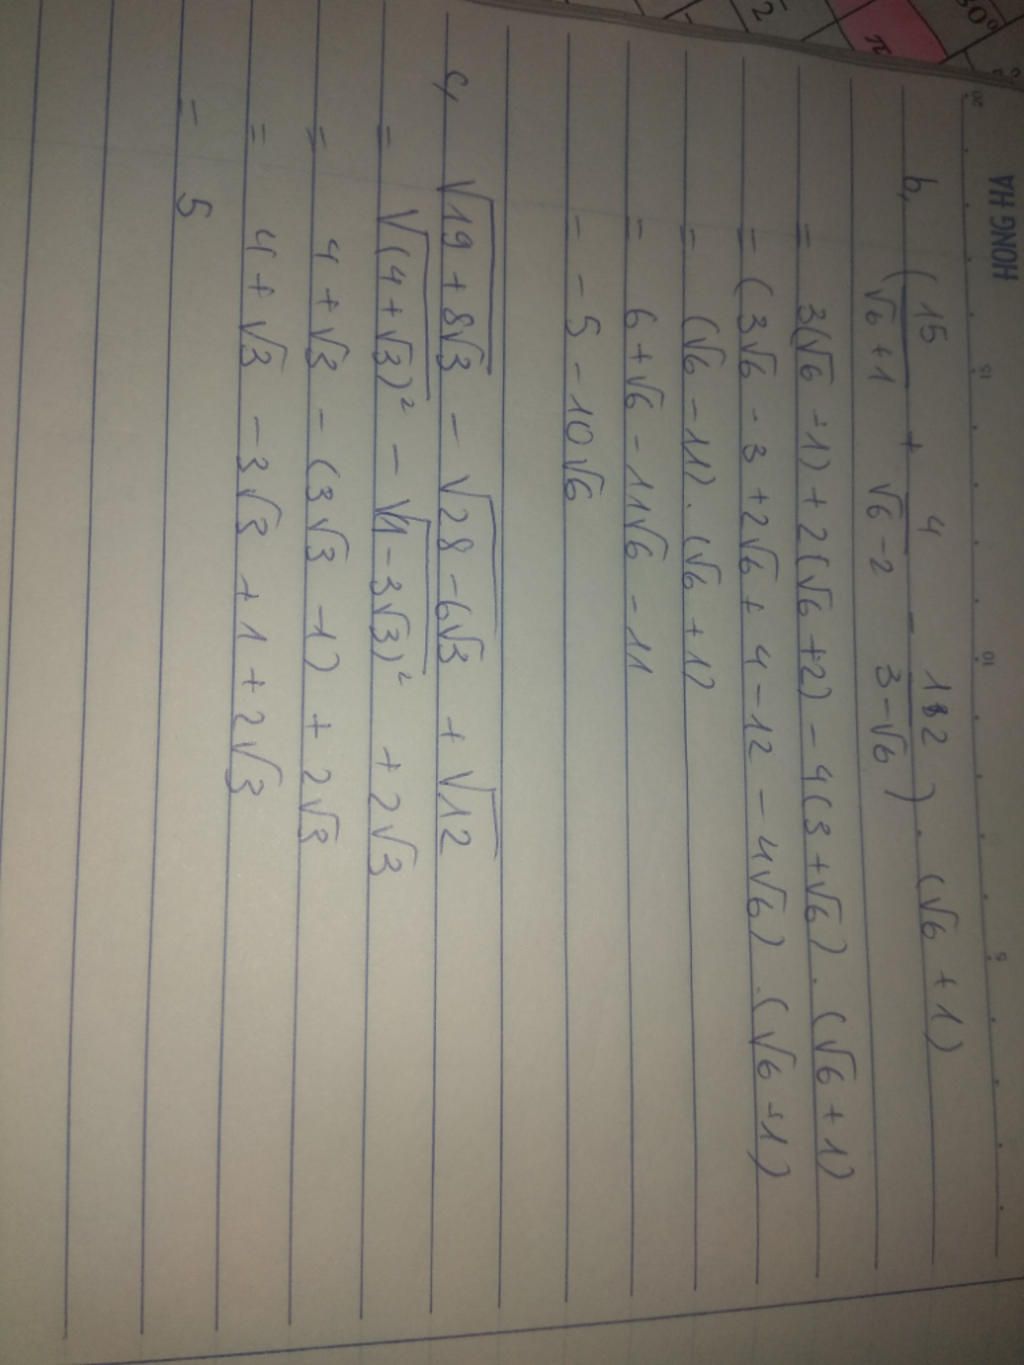 HONG HA
b, (15/√6+1 + 4/√6-2 - 12/3-√6) . (√6 + 1)
= 3(√6 - 1) + 2(√6 + 2) - 4(3 + √6) . (√6 + 1)
= (3√6 - 3 + 2√6 + 4 - 12 - 4√6) . (√6 + 1)
= (√6 - 11) . (√6 + 1)
= 6 + √6 - 11√6 - 11
= - 5 - 10√6
c, √19 + 8√3 - √28 - 6√3 + √12
= √(4 + √3)² - √(1 - 3√3)² + 2√3
= 4 + √3 - (3√3 - 1) + 2√3
= 4 + √3 - 3√3 + 1 + 2√3
= 5